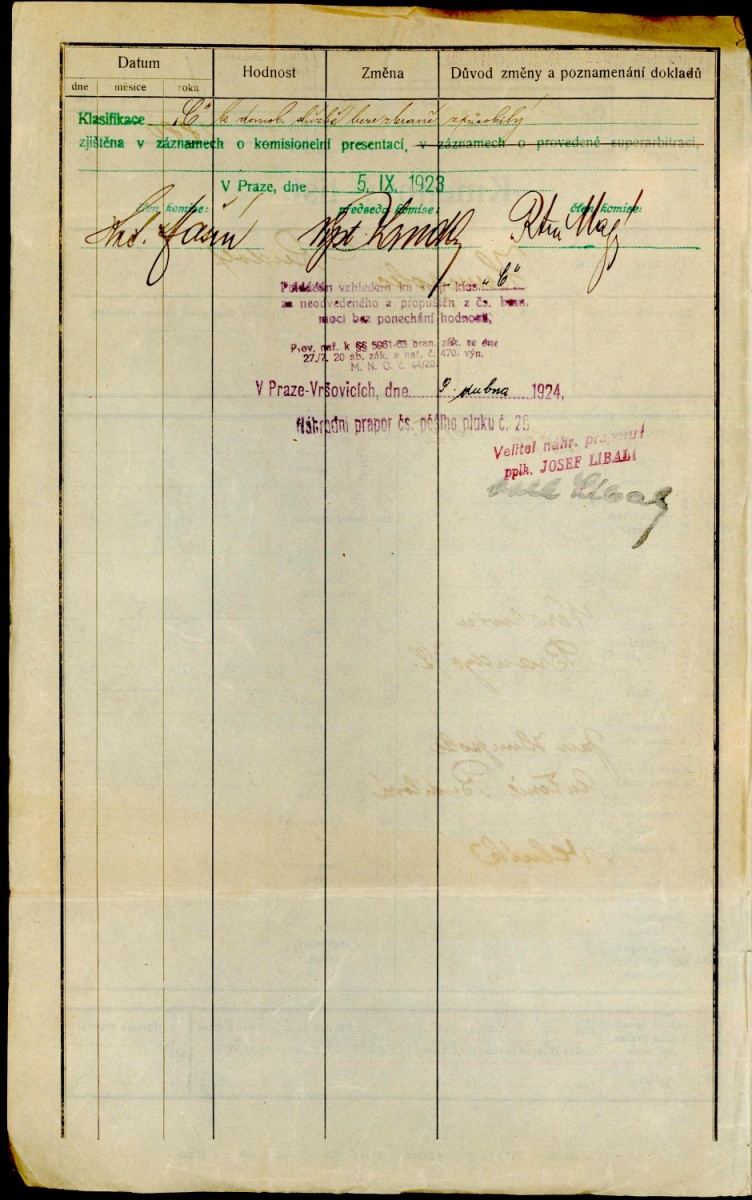 Datum Hodnost Změna Důvod změny a poznamenání dokladů
dne měsíce roku
Klasifikace „C“ k domob. službě beze zbraně způsobilý
zjištěna v záznamech o komisionelní presentaci, v záznamech o provedené superarbitraci,
V Praze, dne 5. IX. 1923
člen komise: předseda komise: člen komise:
vzhledem ku klas. „C“
za neodvedeného a propuštěn z čs. bran.
moci bez ponechání hodnosti,
Prov. nař. k §§ 5961-63 bran. zák. ze dne
27./7. 20 sb. zák. a nař. č. 470. výn.
M. N. O. č. 44/20
V Praze-Vršovicích, dne 9. dubna 1924,
Náhradní prapor čs. pěšího pluku č. 28
Velitel náhr. praporu:
pplk. JOSEF LÍBAL